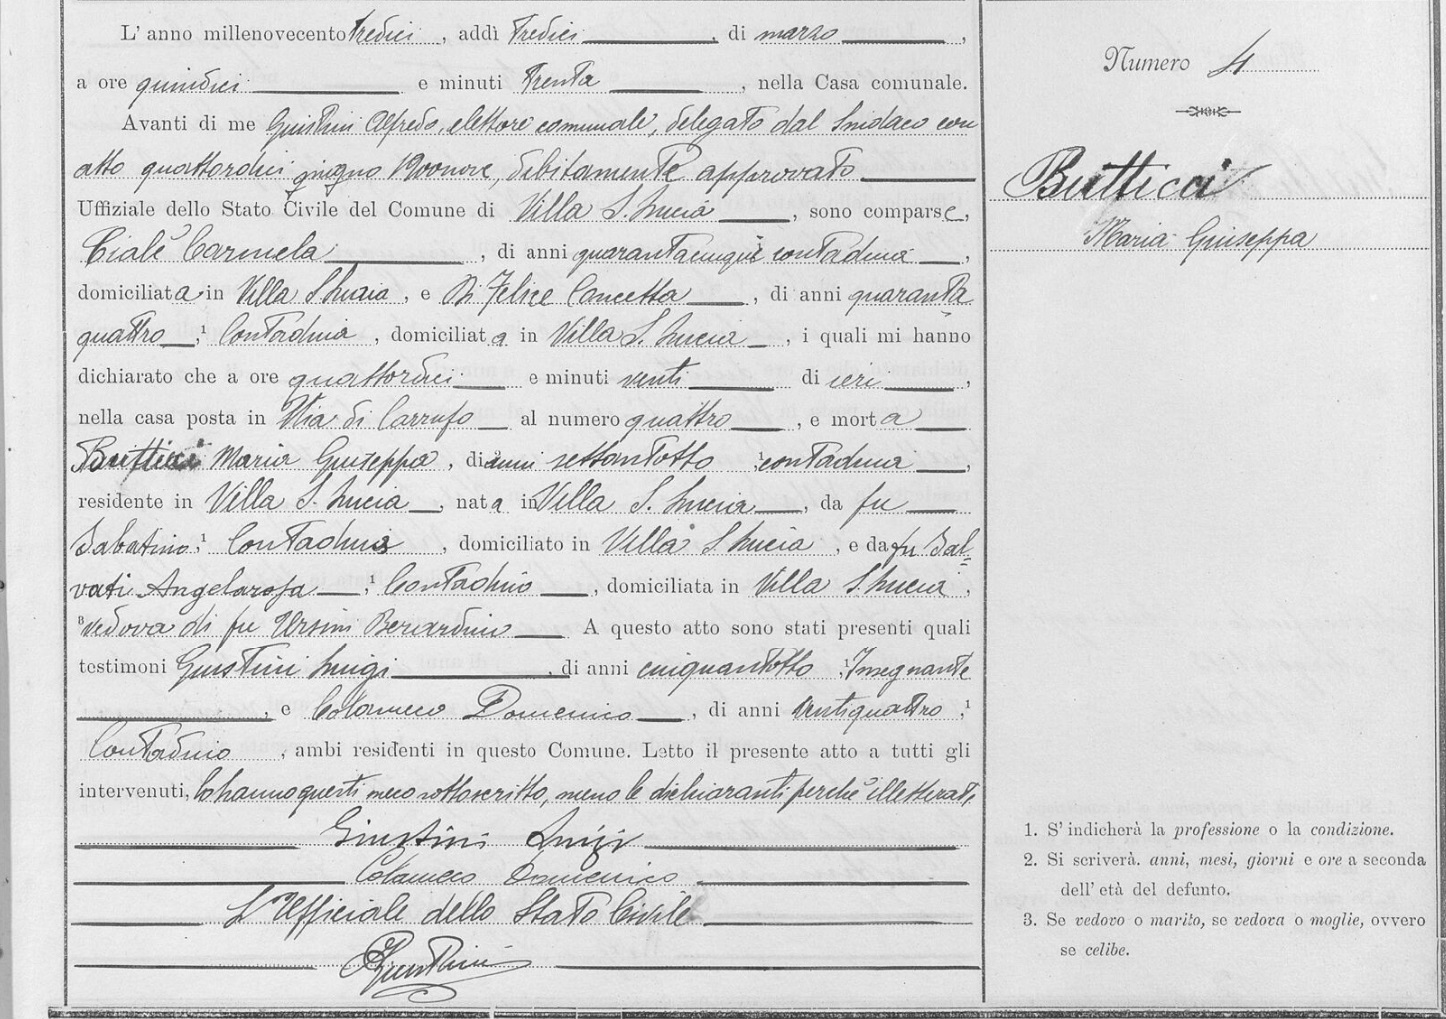 L' anno millenovecento tredici, addì tredici, di marzo,
a ore quindici e minuti trenta, nella Casa comunale.
Avanti di me Giustini Alfredo, elettore comunale, delegato dal Sindaco con
atto quattordici giugno 1900nove, debitamente approvato
Uffiziale dello Stato Civile del Comune di Villa S. Lucia, sono comparse,
Cialè Carmela, di anni quarantacinque contadina,
domiciliata in Villa S Lucia, e Di Felice Concetta, di anni quaranta
quattro,¹ Contadina, domiciliata in Villa S. Lucia, i quali mi hanno
dichiarato che a ore quattordici e minuti venti di ieri,
nella casa posta in Via di Carrufo al numero quattro, e morta
Butticci Maria Giuseppa, di anni settantotto ¹contadina,
residente in Villa S. Lucia, nata in Villa S. Lucia, da fu
Sabatino,¹ Contadino, domiciliato in Villa S Lucia, e da fu Sal=
vati Angelarosa,¹ Contadina, domiciliata in Villa S. Lucia,
³vedova di fu Ursini Berardino A questo atto sono stati presenti quali
testimoni Giustini Luigi, di anni cinquantotto,¹ Insegnante
, e Colameco Domenico, di anni ventiquattro,¹
Contadino, ambi residenti in questo Comune. Letto il presente atto a tutti gli
intervenuti, lo hanno questi meco sottoscritto, meno le dichiaranti perchè illetterate
Giustini Luigi
Colameco Domenico
L'Ufficiale dello Stato Civile
AGiustini
Numero 4
Butticci
Maria Giuseppa
1. S' indicherà la professione o la condizione.
2. Si scriverà. anni, mesi, giorni e ore a seconda
dell' età del defunto.
3. Se vedovo o marito, se vedova o moglie, ovvero
se celibe.